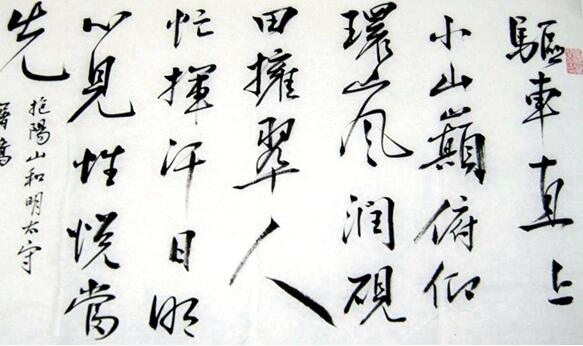 驅車直上
小山巔俯仰
環山風潤硯
田擁翠人
忙揮汗日明
心見性悅當
先
抱陽山和明太守